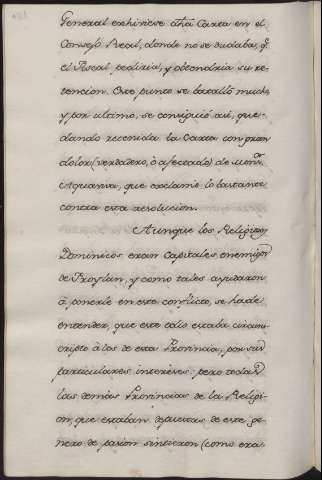 General exhiviese dħa Carta en el
Consejo Real, donde no se dudaba, q.e
el Fiscal pediria, y obtendria su re-
tencion. Este punto se batalló mucho
y por ultimo, se consiguió asi, que-
dando retenida la Carta con gran
dolor (verdadero, ò afectado) de Mons.or
Aquaviva, que exclamó lo bastante
contra esta resolucion.
Aunque los Religiosos
Dominicos eran Capitales enemigos
de Froylan, y como tales ayudaron
à ponerle en este conflicto, se ha de
entender, que este odio estaba circuns-
cripto à los de esta Provincia, por sus
particulares intereses: pero todas
las demas Provincias de la Religi-
on, que estaban desnudas de este ge-
nero de pasion sintieron (como era